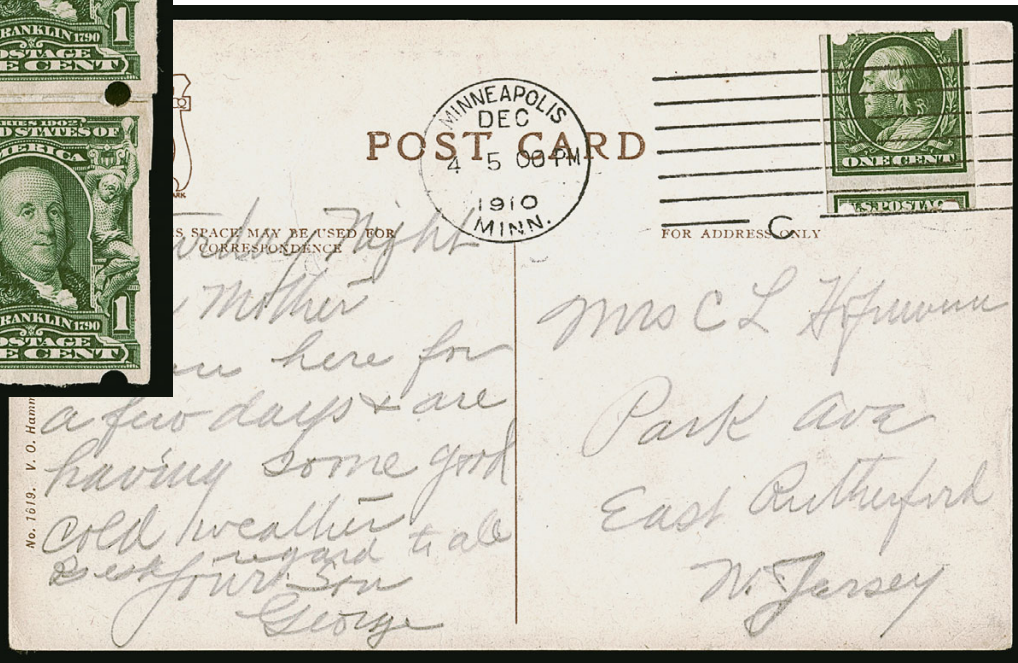 RANKLIN 1790 1
OSTAGE
E CENT
RIES 1902
D STATES OF
MERICA
RANKLIN 1790 1
OSTAGE
E CENT
POST CARD
MINNEAPOLIS
DEC
4 5 00 PM
1910
MINN.
C
ONE CENT
U.S. POSTAG
S SPACE MAY BE USED FOR
CORRESPONDENCE
FOR ADDRESS ONLY
Night
Mother
here for
a few days & are
having some good
cold weather
Best regard to all
Your Son
George
Mrs C L
Park Ave
East Rutherford
N. Jersey
No. 1619. V. O. Hamm